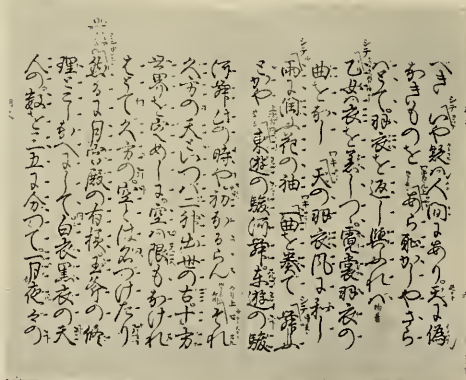 べき いや疑ハ人間にあり。天に偽
なきものを あら恥かしやさら
ハとて。羽衣を返し與ふれハ 物着
シテ 乙女ハ衣を着しつゝ。霓裳羽衣の
曲をなし ワキ 天の羽衣風に和し
シテ 雨に潤ふ花の袖 一曲を奏て シテ 舞ふ
とかや 東遊の駿河舞東遊の駿
河舞此時や初なるらん それ
久方の天といつハ二神出世の古十方
世界を定めしに空ハ限もなけれ
はとて久方の空とハ名つけたり
然るに月宮殿の有様玉斧の修
理とこしなへにして白衣黒衣の天
人の数を三五に分つて一月夜々の